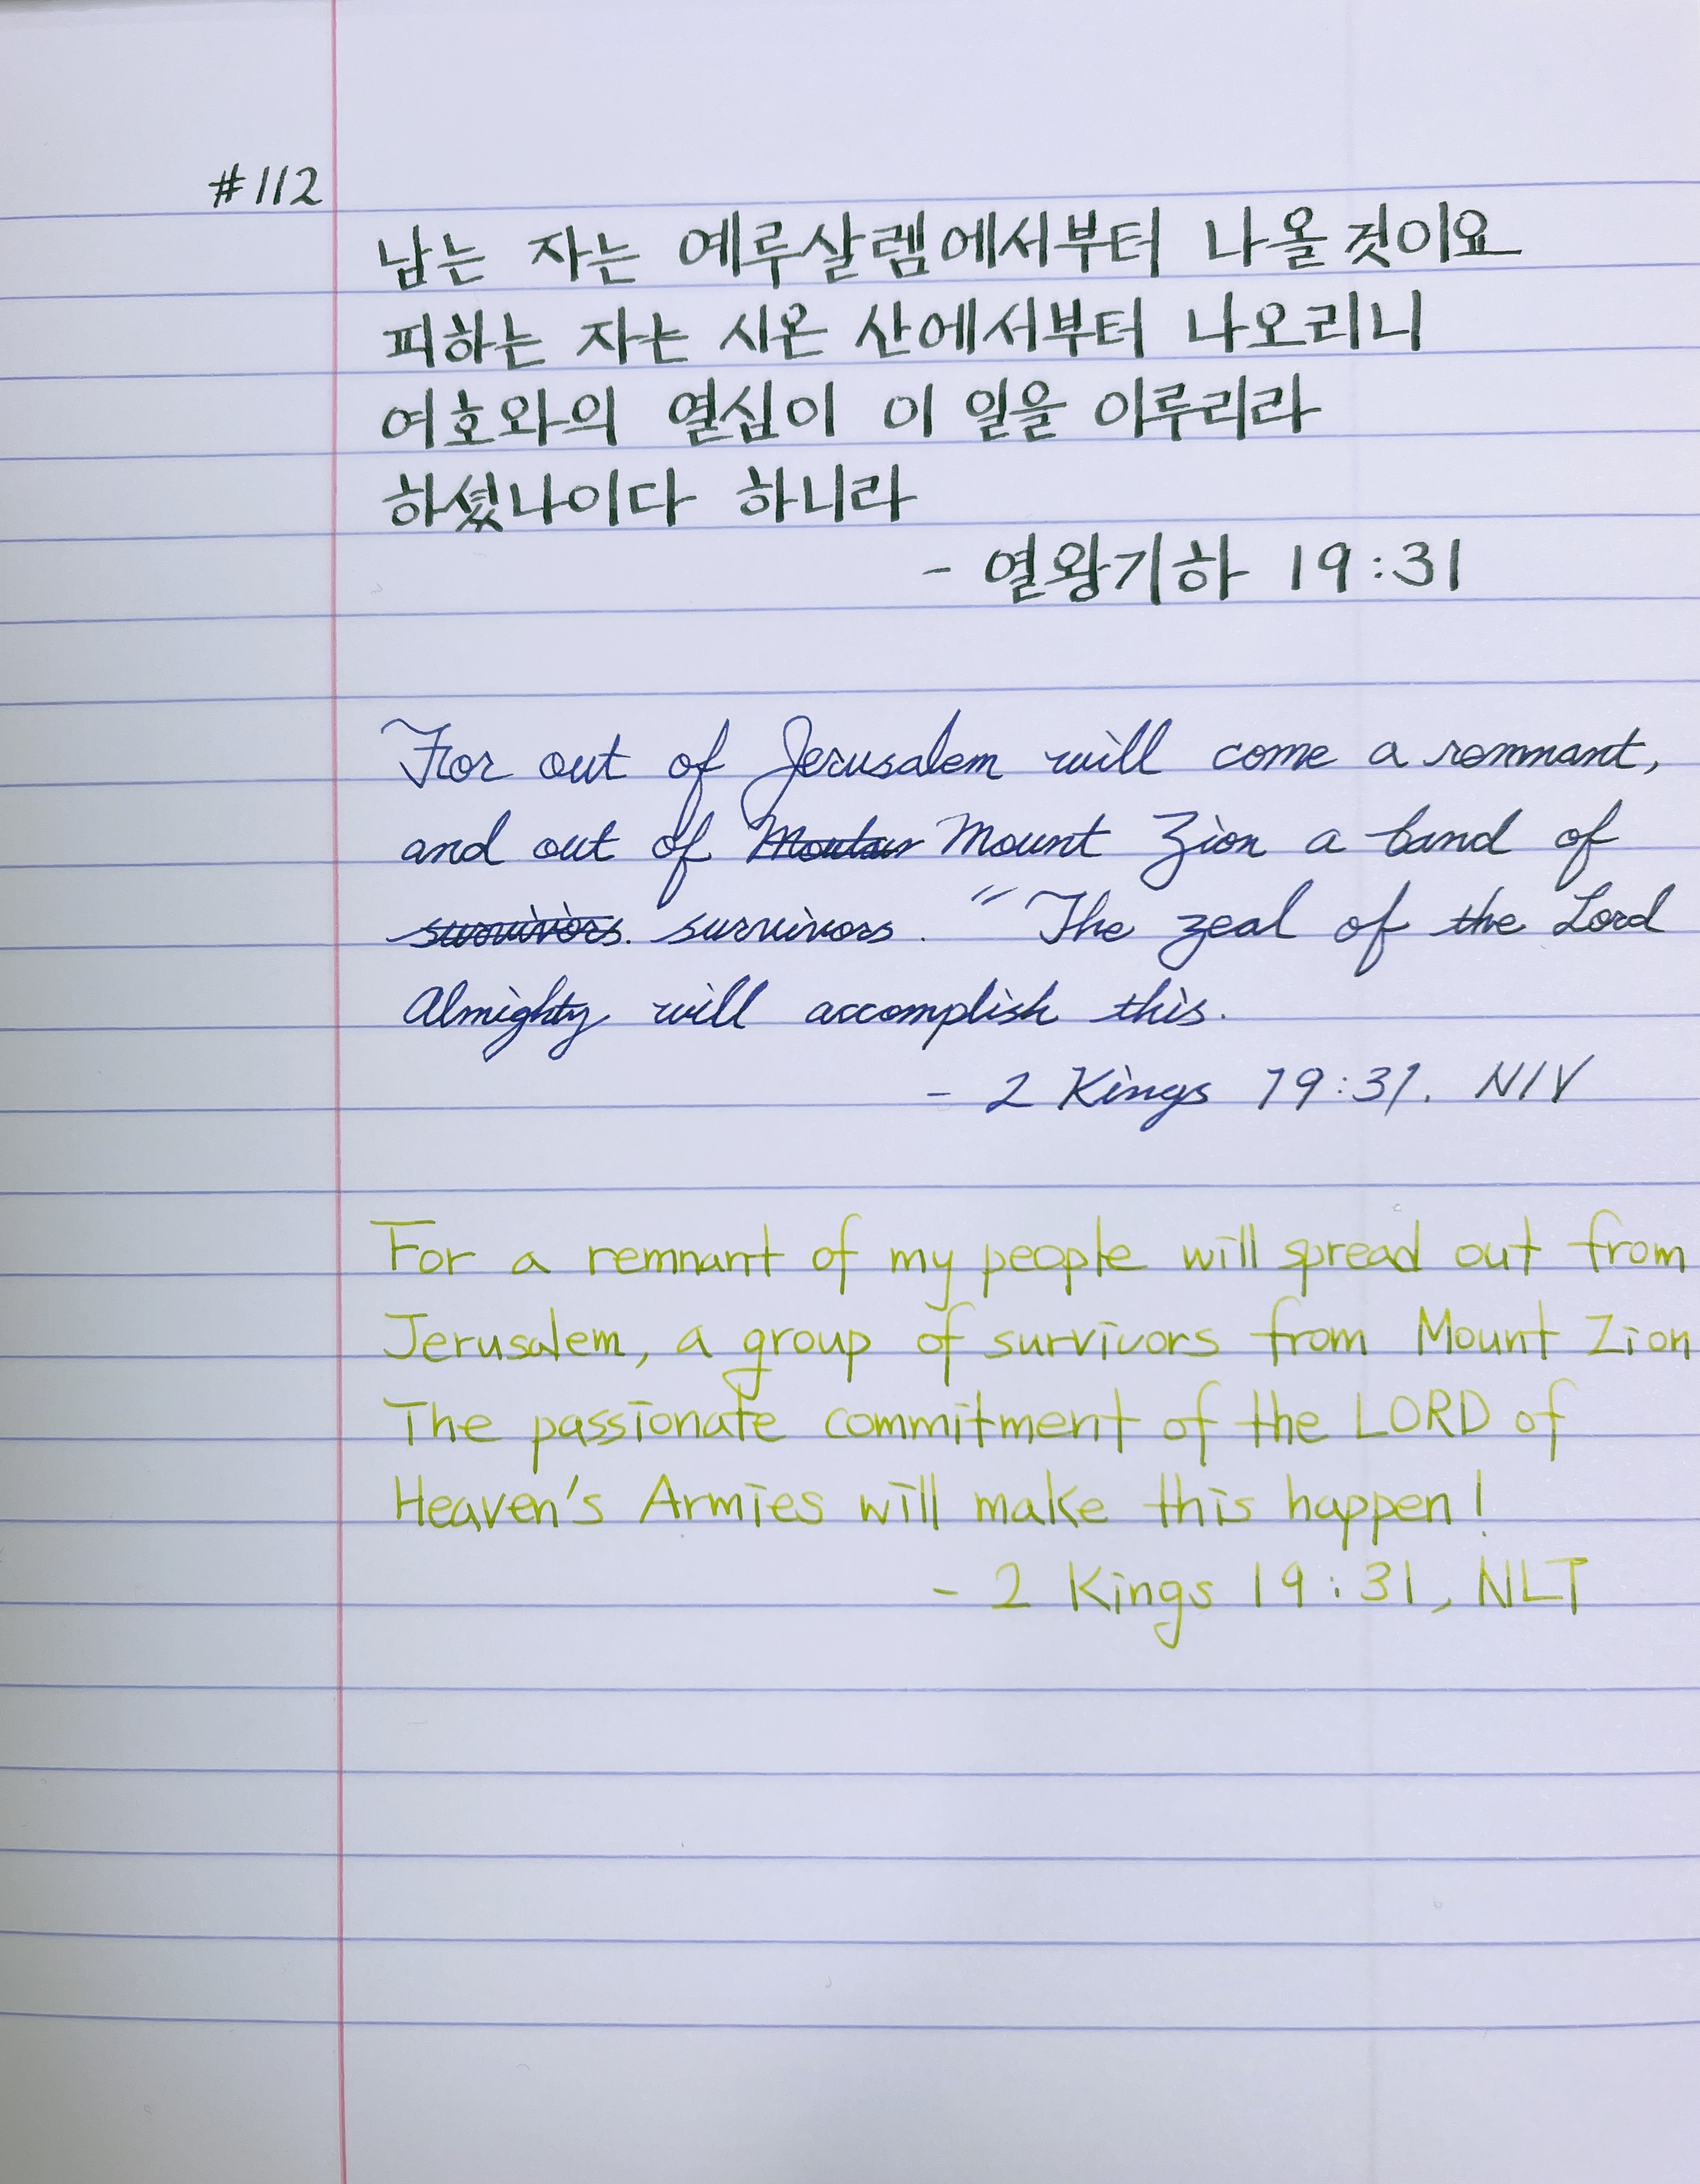 #112
남는 자는 예루살렘에서부터 나올 것이요
피하는 자는 시온 산에서부터 나오리니
여호와의 열심이 이 일을 이루리라
하셨나이다 하니라
- 열왕기하 19:31
For out of Jerusalem will come a remnant,
and out of Mount Zion a band of
survivors. survivors. "The zeal of the Lord
Almighty will accomplish this.
- 2 Kings 19:31. NIV
For a remnant of my people will spread out from
Jerusalem, a group of survivors from Mount Zion
The passionate commitment of the LORD of
Heaven's Armies will make this happen!
- 2 Kings 19:31, NLT